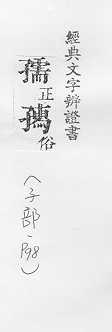 經典文字辨證書
孺正 俗
(子部-P98)